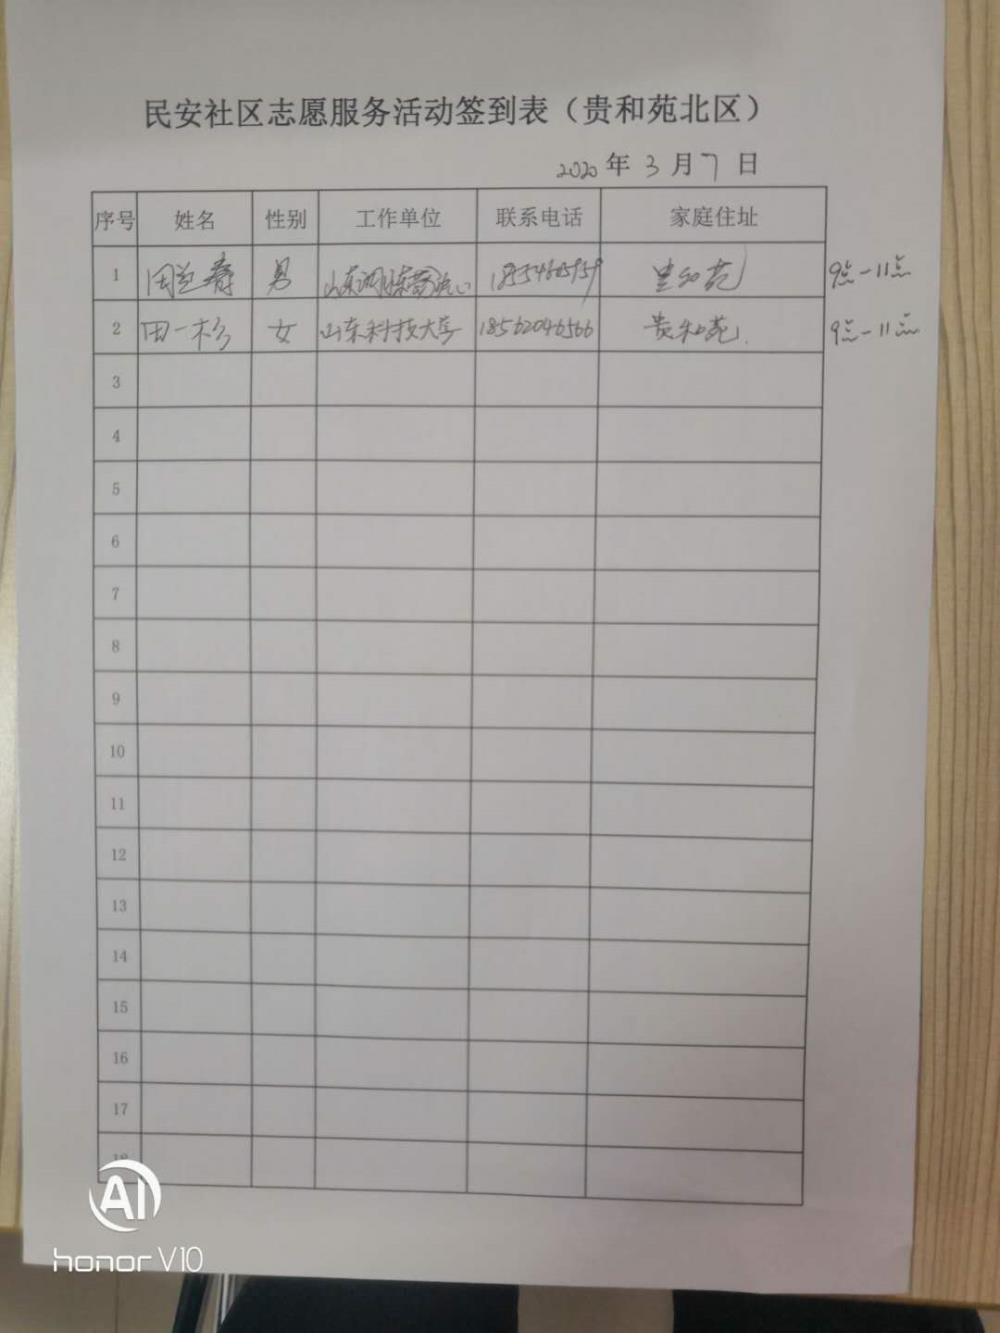 民安社区志愿服务活动签到表（贵和苑北区）
2020 年 3 月 7 日
序号 姓名 性别 工作单位 联系电话 家庭住址
1 男 9点-11点
2 田一杉 女 山东科技大学 18562046566 贵和苑 9点-11点
3
4
5
6
7
8
9
10
11
12
13
14
15
16
17
18
AI
honor V10